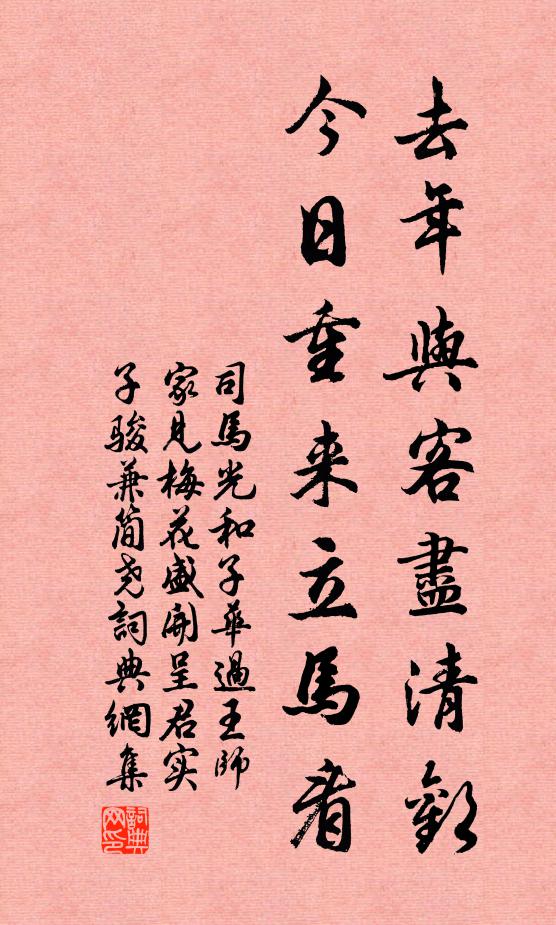 去年與客盡清歡
今日重来立馬看
司馬光和子華過王師
家見梅花盛開呈君实
子駿兼簡尧詞典網集
詞典
网印